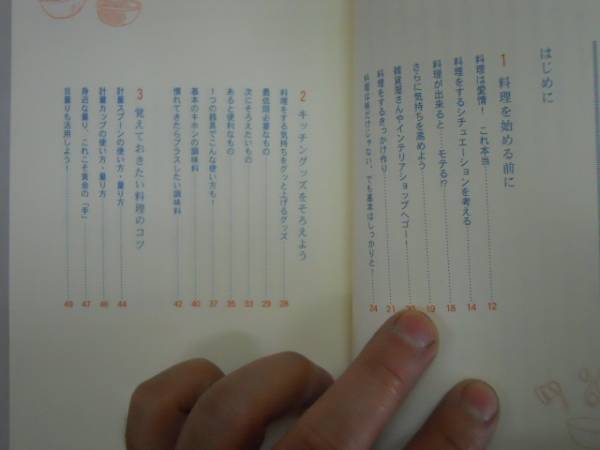 はじめに
1 料理を始める前に
料理は愛情！ これ本当 12
料理をするシチュエーションを考える 14
料理が出来ると…… モテる!? 18
さらに気持ちを高めよう 19
雑貨屋さんやインテリアショップへゴー！
料理をするきっかけ作り 21
料理は味だけじゃない、でも基本はしっかりと！ 24
2 キッチングッズをそろえよう
料理をする気持ちをグッと上げるグッズ 28
最低限必要なもの 29
次にそろえたいもの 33
あると便利なもの 35
1つの器具でこんな使い方も！ 37
基本のキホンの調味料 40
慣れてきたらプラスしたい調味料 42
3 覚えておきたい料理のコツ
計量スプーンの使い方・量り方 44
計量カップの使い方・量り方 46
身近な量り、これこそ黄金の「手」 47
目量りも活用しよう！ 49